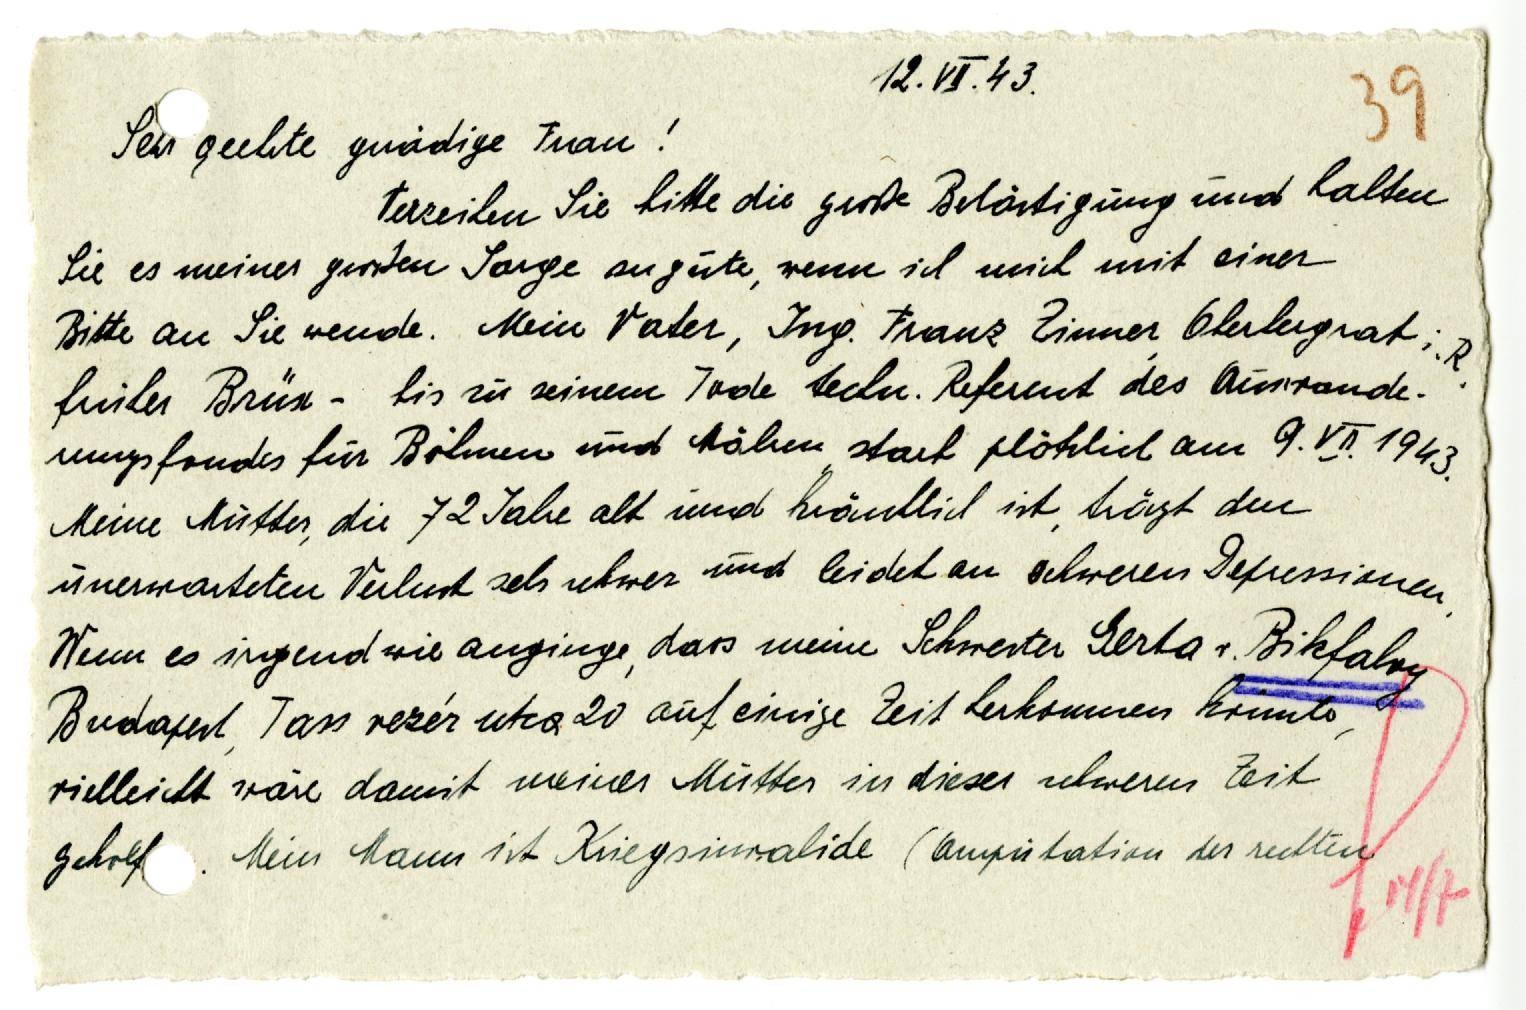 12. VII. 43.
39
Sehr geehrte gnädige Frau!
Verzeihen Sie bitte die große Belästigung und halten
Sie es meiner großen Sorge zu gute, wenn ich mich mit einer
Bitte an Sie wende. Mein Vater, Ing. Franz Zinner, Oberbergrat i. R.
früher Brüx - bis zu seinem Tode techn. Referent des Auswande-
rungsfondes für Böhmen und Mähren starb plötzlich am 9. VII. 1943.
Meine Mutter, die 72 Jahre alt und kränklich ist, trägt den
unerwarteten Verlust sehr schwer und leidet an schweren Depressionen.
Wenn es irgendwie anginge, dass meine Schwester Gerta v. Bikfalvy
Budapest, Tass vezér utca 20 auf einige Zeit herkommen könnte,
vielleicht wäre damit meiner Mutter in dieser schweren Zeit
geholf . Mein Mann ist Kriegsinvalide (Amputation der rechten